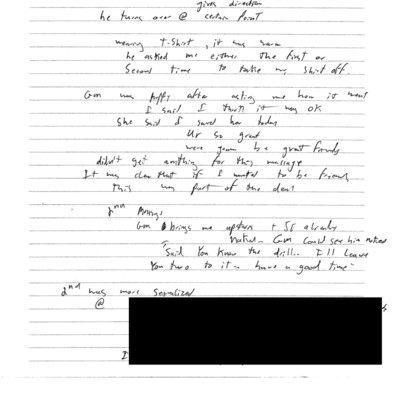 gives direction
he turns over @ certain point
wearing T-shirt, it was warm
he asked me either the first or
second time to take my shirt off.
GM was puffy after asking me how it went
I said I think it was OK
She said I saved her today
Ur so great
were gonna be great friends
didn't get anything for this massage
It was clear that if I wanted to be friends
This was part of the deal
2nd Massage
GM brings me upstairs + SF already
naked.. GM could see him naked
"Said You know the drill.. I'll leave
You two to it - have a good time"
2nd was more sexualized
@
I